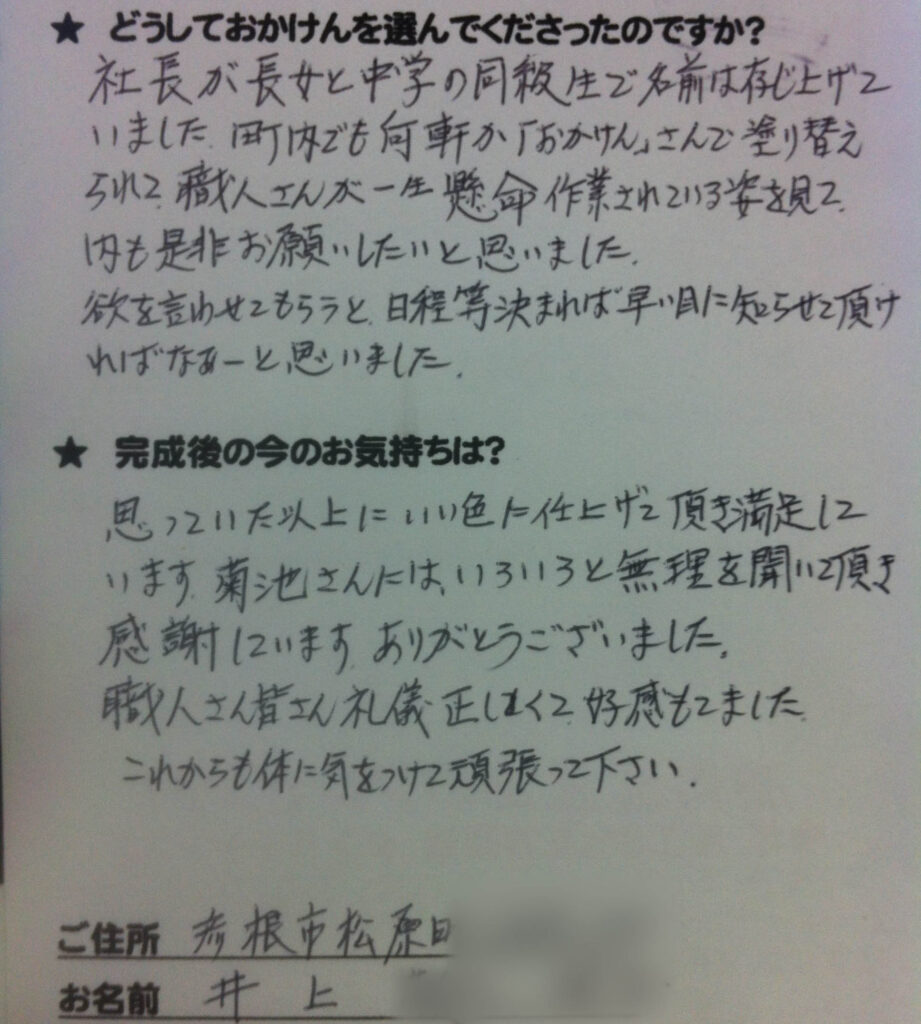 ★ どうしておかけんを選んでくださったのですか?
社長が長女と中学の同級生で名前は存じ上げて
いました。町内でも何軒か「おかけん」さんで塗り替え
られて、職人さんが一生懸命作業されている姿を見て、
内も是非お願いしたいと思いました。
欲を言わせてもらうと、日程等決まれば早い目に知らせて頂け
ればなぁーと思いました。
★ 完成後の今のお気持ちは?
思っていた以上にいい色に仕上げて頂き満足して
います。菊池さんには、いろいろと無理を聞いて頂き
感謝しています。ありがとうございました。
職人さん皆さん礼儀正しくて、好感もてました。
これからも体に気をつけて頑張って下さい。
ご住所 彦根市松原
お名前 井上